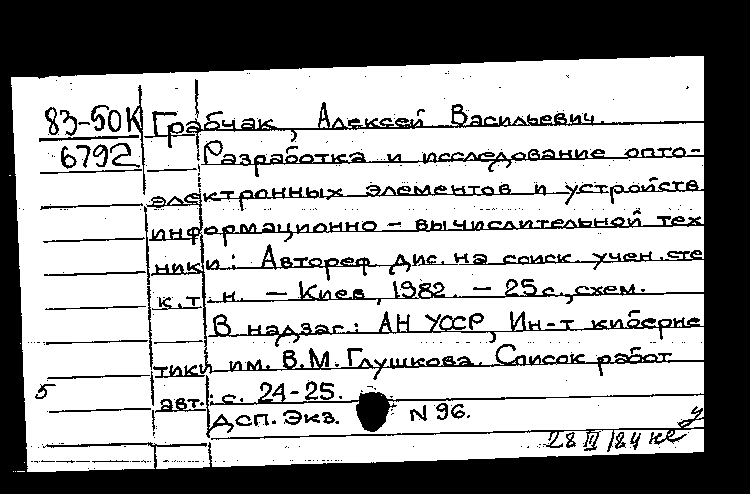 83-50К Грабчак, Алексей Васильевич.
6792 Разработка и исследование опто-
электронных элементов и устройств
информационно - вычислительной тех
ники: Автореф. дис. на соиск. учен. сте
к.т.н. - Киев, 1982. - 25 с., схем.
В надзаг.: АН УССР, Ин-т киберне
тики им. В.М. Глушкова. Список работ
5 авт.: с. 24-25.
ДСП. Экз. N 96.
28 III 84 не у